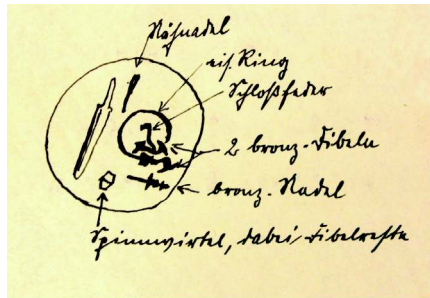 Nähnadel
eis. Ring
Schloßfeder
2 bronz. Fibeln
bronz. Nadel
Spinnwirtel, dabei Fibelreste